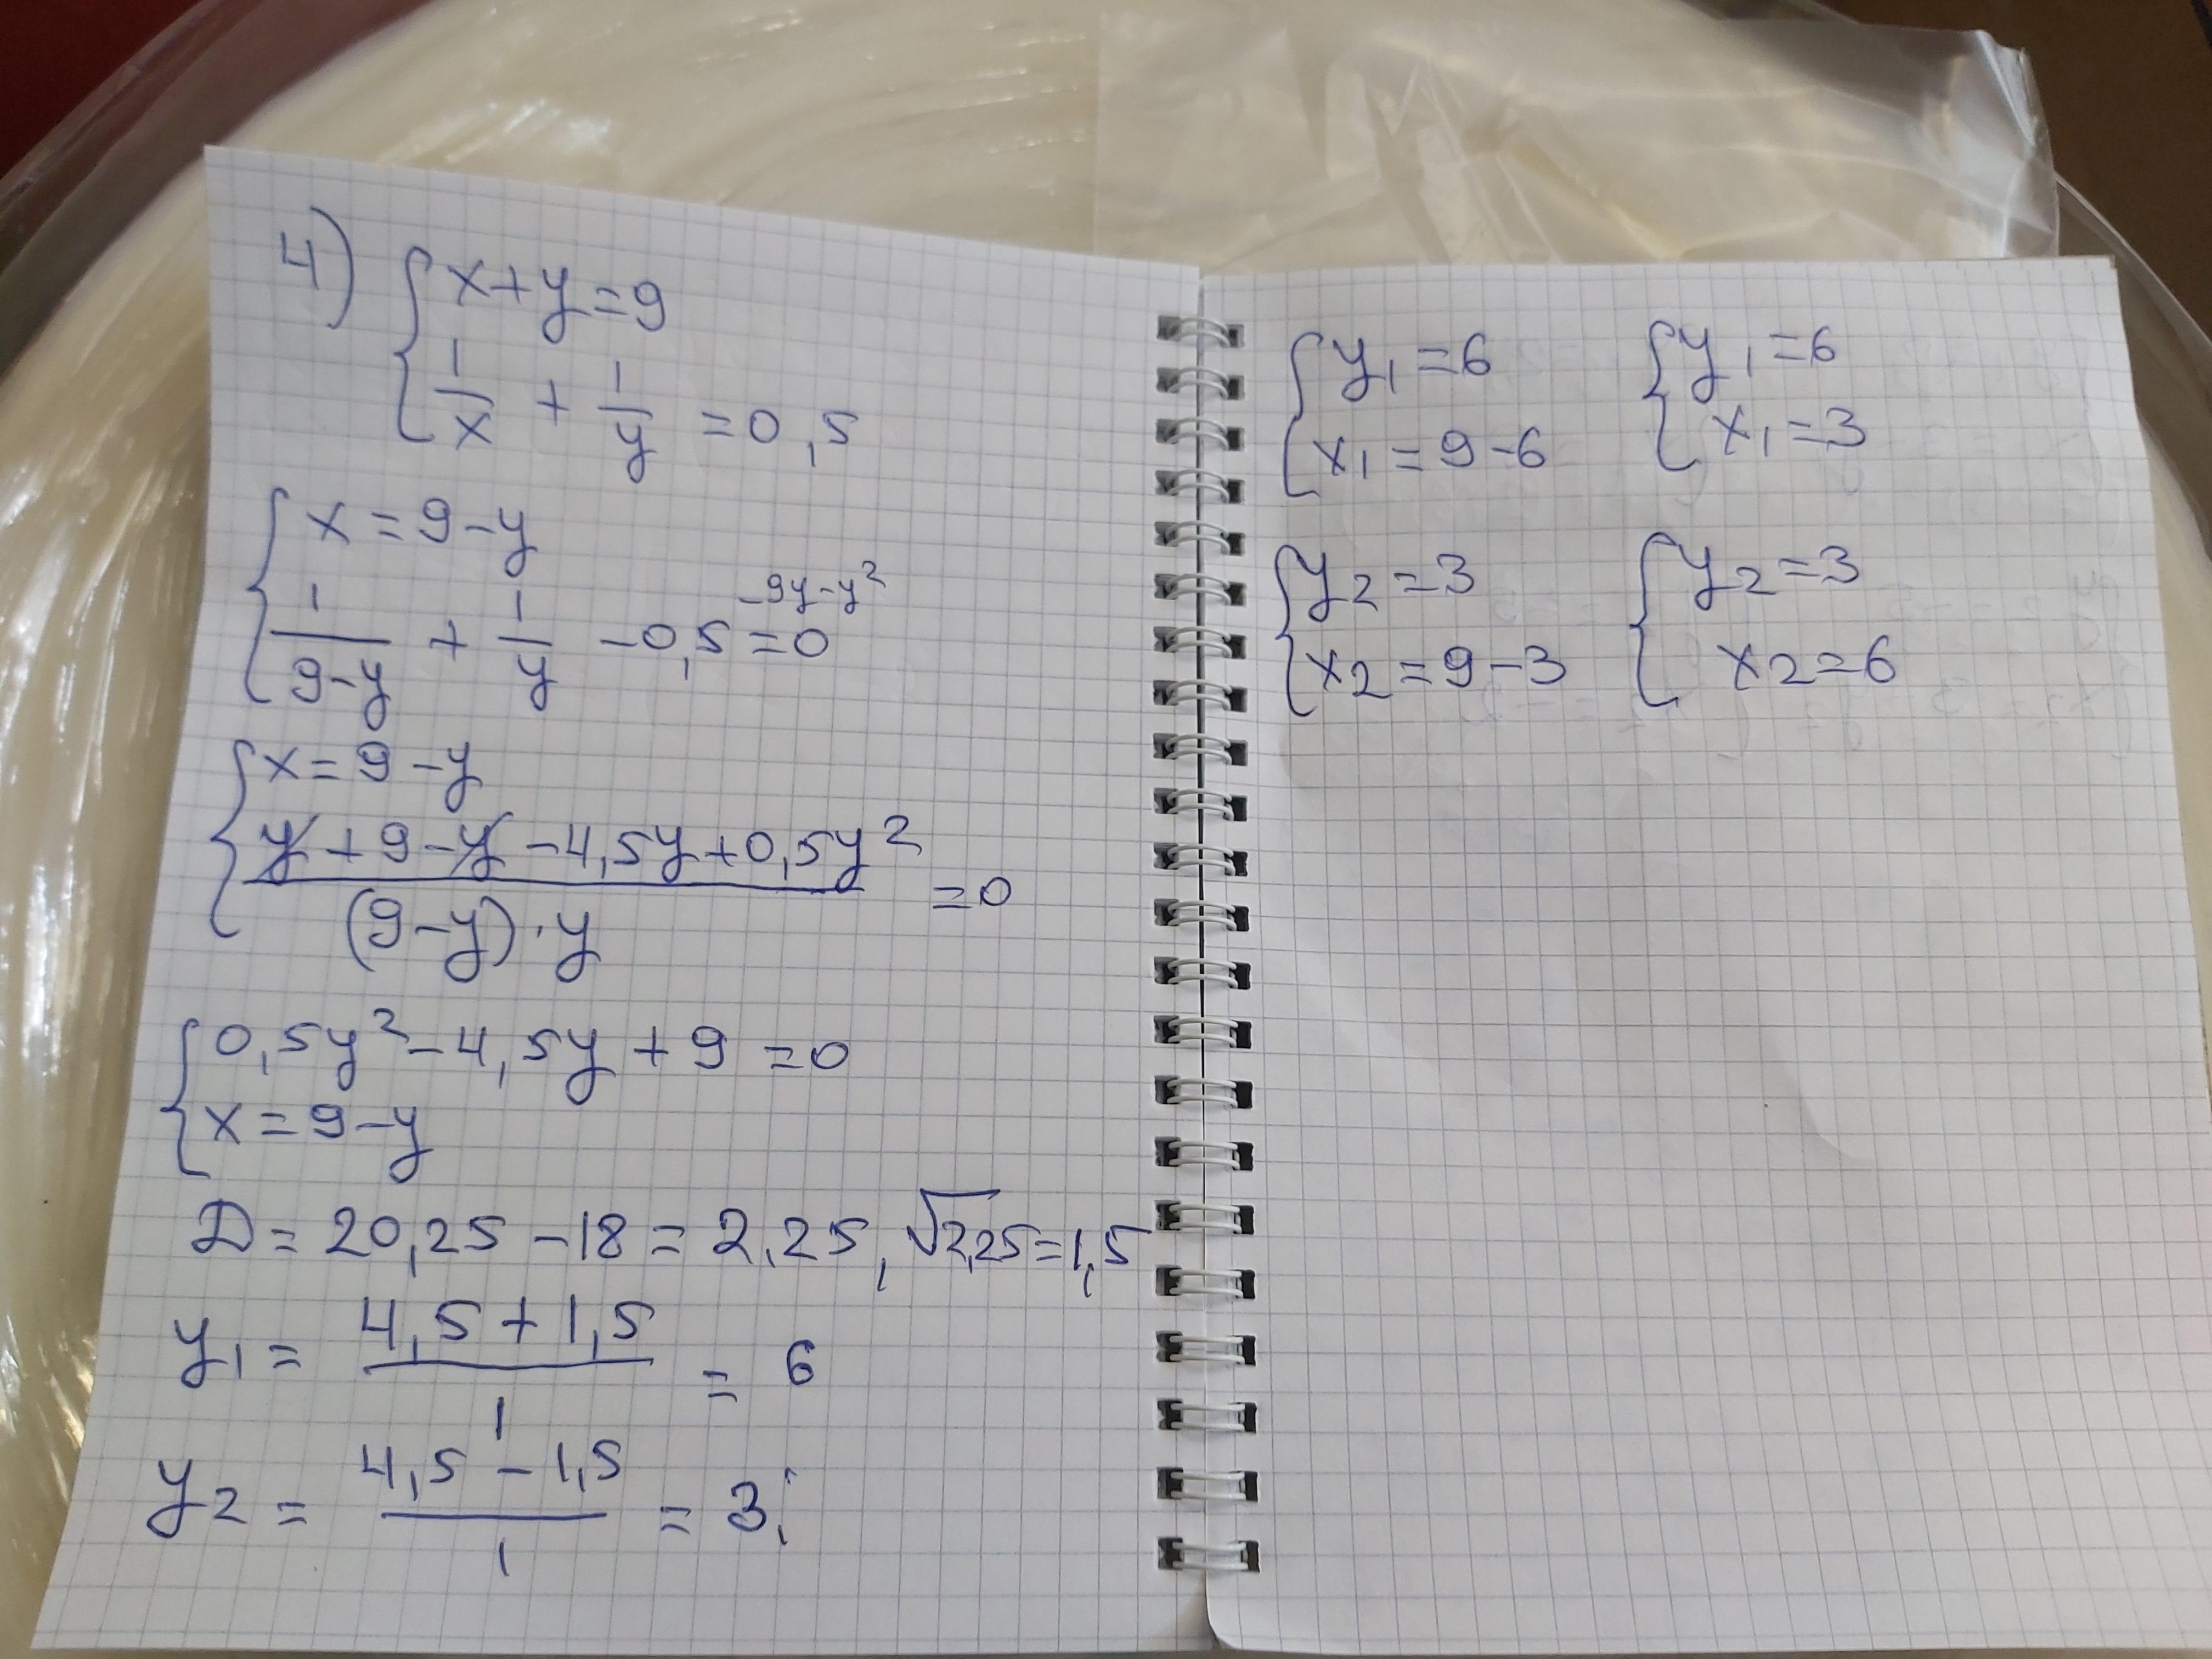 4) { x+y=9
1/x + 1/y =0,5
{ x=9-y
-9y-y²
1/(9-y) + 1/y -0,5=0
{ x=9-y
(y+9-y-4,5y+0,5y²)/((9-y)·y) =0
{ 0,5y²-4,5y+9=0
x=9-y
D=20,25-18=2,25, √2,25=1,5
y₁= (4,5+1,5)/1 = 6
y₂= (4,5-1,5)/1 = 3;
{ y₁=6 { y₁=6
x₁=9-6 x₁=3
{ y₂=3 { y₂=3
x₂=9-3 x₂=6